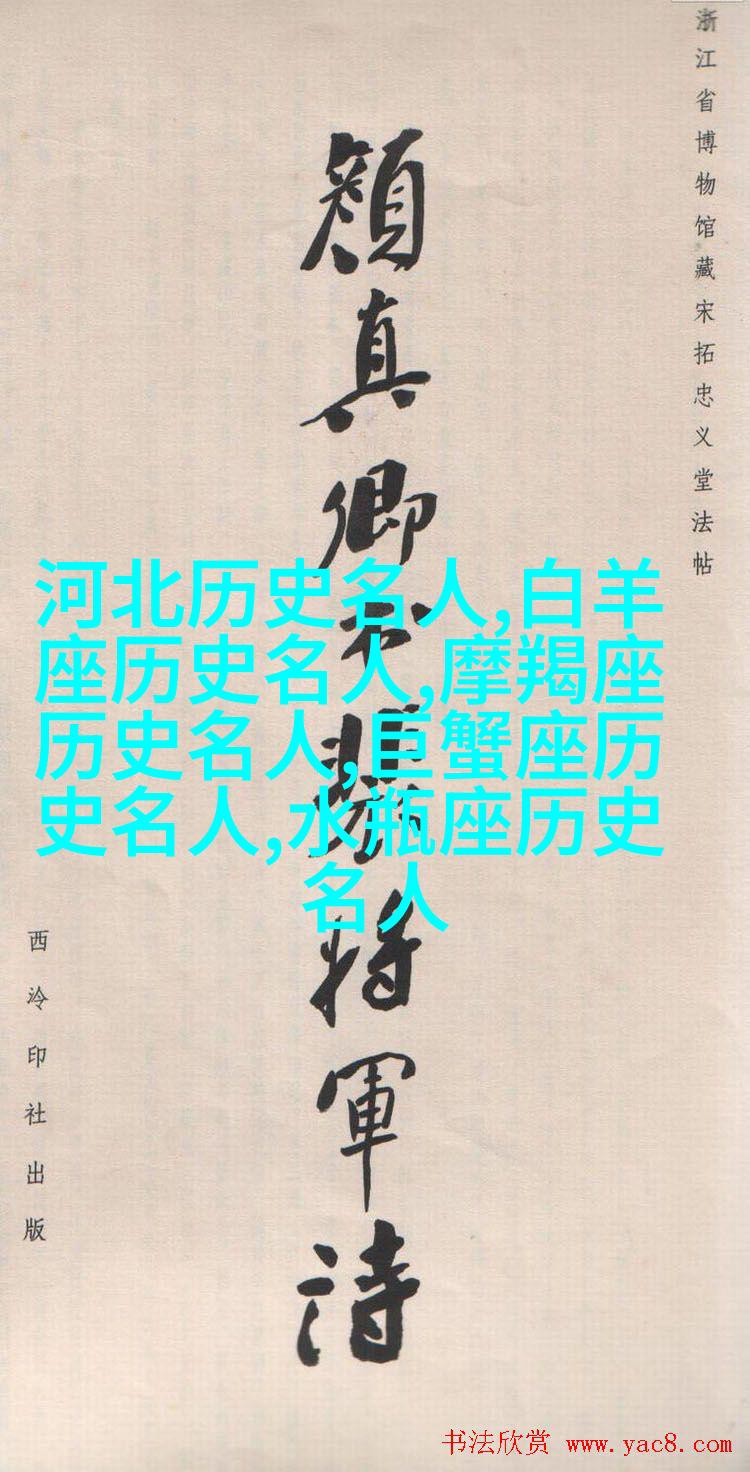 浙江省博物馆藏宋拓忠义堂法帖
颜真卿书裴将军诗
西泠印社出版
河北历史名人,白羊
座历史名人,摩羯座
历史名人,巨蟹座历
史名人,水瓶座历史
名人
书法欣赏 www.yac8.com